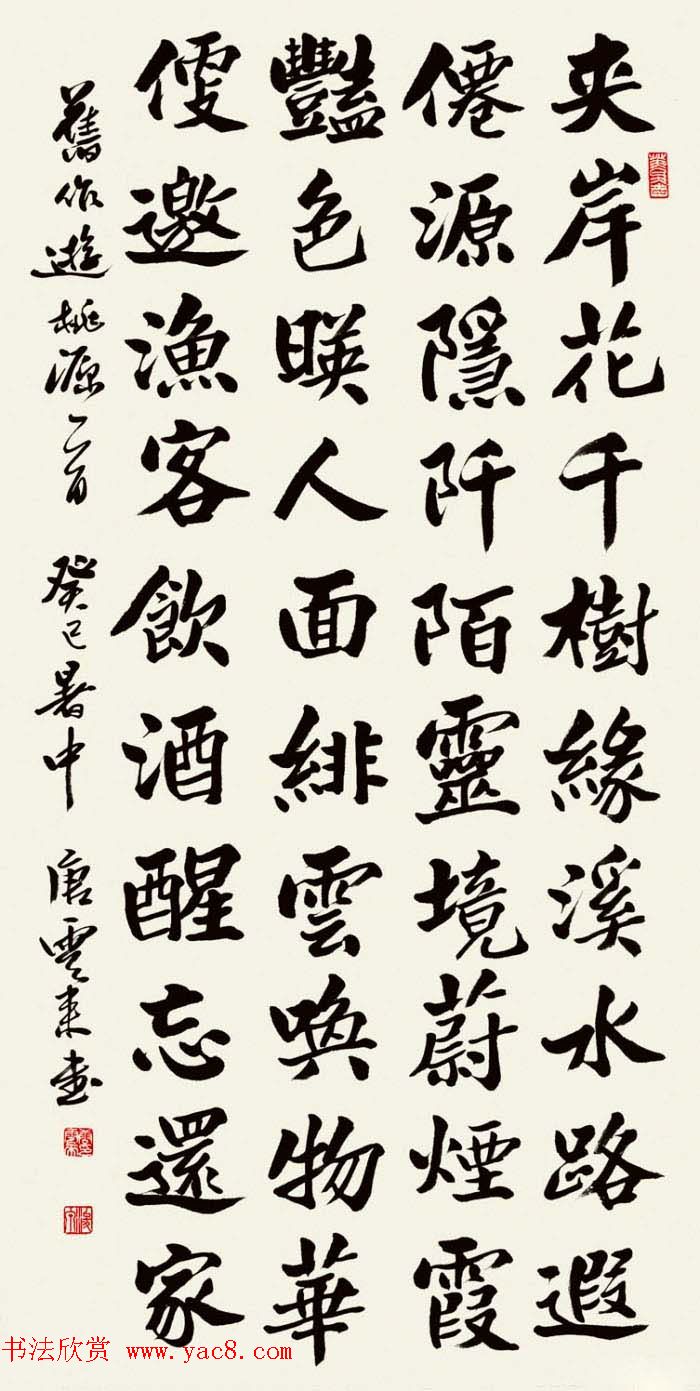 夾岸花千樹緣溪水路遐
僊源隱阡陌靈境蔚煙霞
豔色暎人面緋雲喚物華
便邀漁客飲酒醒忘還家
舊作遊桃源一首 癸巳暑中 唐雲来书
书法欣赏 www.yac8.com